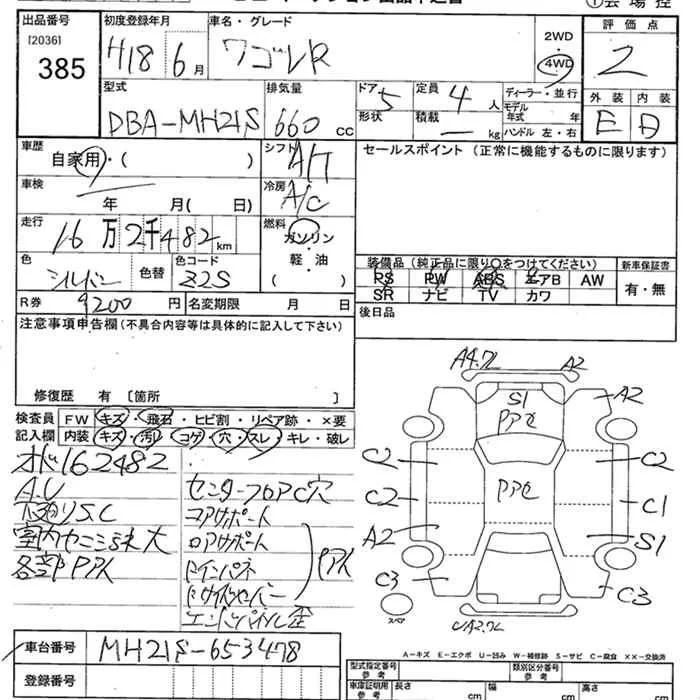 出品番号 初度登録年月 車名・グレード 2WD 評価点
[2036] 385 H18年 6月 ワゴンR 4WD 2
型式 排気量 ドア 5 定員 4人 ディーラー・並行 外装 内装
DBA-MH21S 660 CC 形状 積載 — kg モデル年式 年 E D
ハンドル 左・右
車歴 自家用・( ) シフト A/T セールスポイント (正常に機能するものに限ります)
車検 年 月( 日) 冷房 A/C
走行 16万2千482km 燃料 ガソリン・軽油 ( )
色 シルバー 色替 色コード Z2S
装備品 (純正品に限り○をつけてください) 新車保証書
PS PW ABS エアB AW 有・無
SR ナビ TV カワ
R券 9200円 名変期限 月 日 後日品
注意事項申告欄(不具合内容等は具体的に記入して下さい)
修復歴 有 [箇所 ]
検査員 FW キズ・飛石・ヒビ割・リペア跡・×要
記入欄 内装 キズ・汚れ・コゲ・穴・スレ・キレ・破レ
オド162482
A.U
下廻りS.C
室内ヤニ
各部PPハ
センターフロアC穴
コアサポート
ロアサポート
インパネ
A4.7L A2
S1 A2
C2 C2
C2 C1
A2 S1
C3 C3
スペア
UA2.7L
車台番号 MH21S-653478
登録番号
A－キズ E－エクボ U－凹み W－補修跡 S－サビ C－腐食 ××－交換済
型式指定番号 参考 類別区分番号 参考
車庫証明用 参考 長さ cm 幅 cm 高さ cm